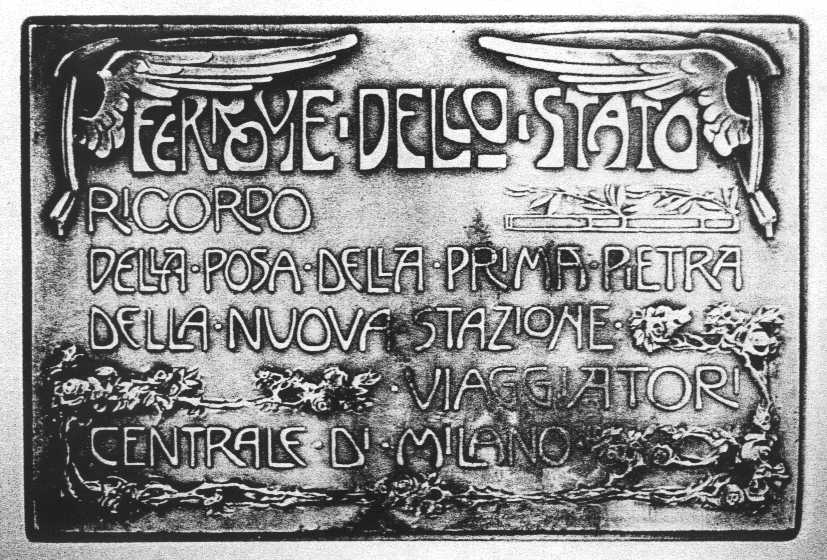 FERROVIE·DELLO·STATO
RICORDO
DELLA·POSA·DELLA·PRIMA·PIETRA
DELLA·NUOVA STAZIONE·
·VIAGGIATORI
CENTRALE·DI·MILANO·